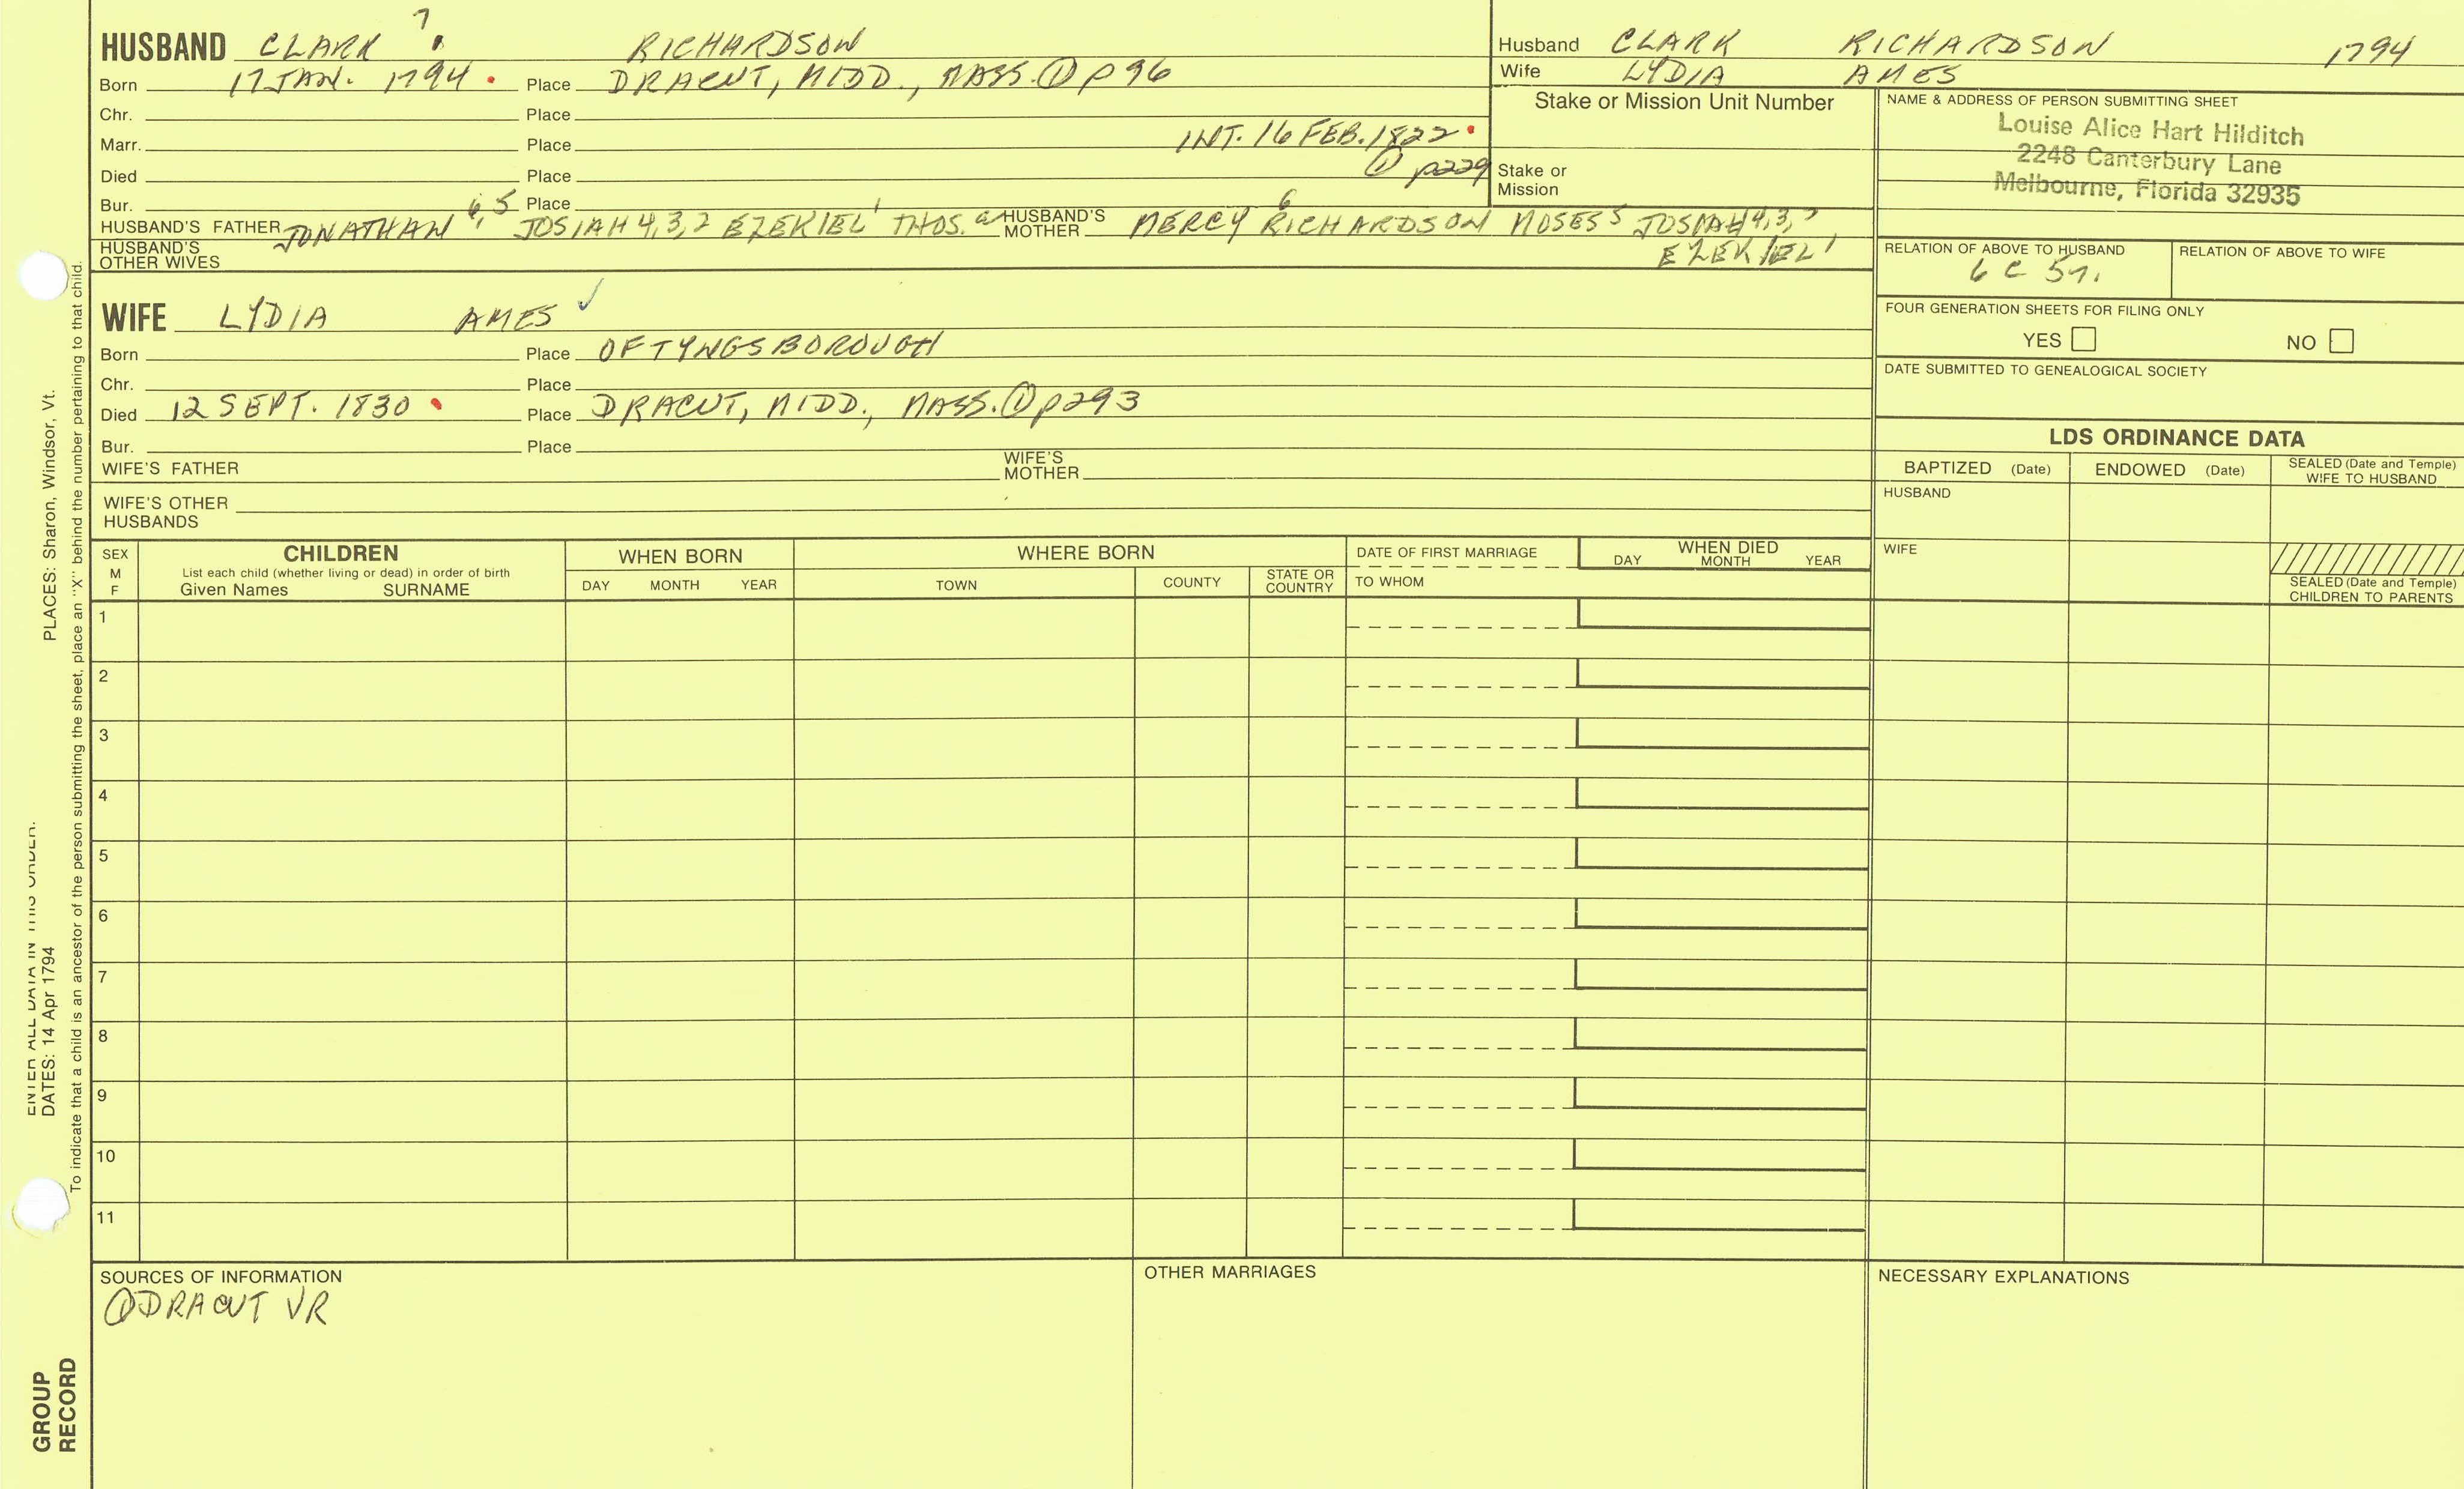 HUSBAND CLARK 7 RICHARDSON
Born 17 JAN. 1794 Place DRACUT, MIDD., MASS. ① p 96
Chr. Place
Marr. Place INT. 16 FEB. 1822
Died Place ① p229
Bur. Place
HUSBAND'S FATHER JONATHAN 6,5 JOSIAH 4,3,2 EZEKIEL 1 THOS. a HUSBAND'S MOTHER MERCY 6 RICHARDSON MOSES 5 JOSIAH 4,3,2
EZEKIEL 1
HUSBAND'S OTHER WIVES
WIFE LYDIA AMES ✓
Born Place OF TYNGSBOROUGH
Chr. Place
Died 12 SEPT. 1830 Place DRACUT, MIDD., MASS. ① p293
Bur. Place
WIFE'S FATHER WIFE'S MOTHER
WIFE'S OTHER HUSBANDS
Husband CLARK RICHARDSON 1794
Wife LYDIA AMES
Stake or Mission Unit Number
Stake or Mission
NAME & ADDRESS OF PERSON SUBMITTING SHEET
Louise Alice Hart Hilditch
2248 Canterbury Lane
Melbourne, Florida 32935
RELATION OF ABOVE TO HUSBAND RELATION OF ABOVE TO WIFE
6 C 5 r.
FOUR GENERATION SHEETS FOR FILING ONLY
YES NO
DATE SUBMITTED TO GENEALOGICAL SOCIETY
LDS ORDINANCE DATA
BAPTIZED (Date) ENDOWED (Date) SEALED (Date and Temple) WIFE TO HUSBAND
HUSBAND
WIFE
SEALED (Date and Temple) CHILDREN TO PARENTS
SEX M F
CHILDREN
List each child (whether living or dead) in order of birth
Given Names SURNAME
WHEN BORN
DAY MONTH YEAR
WHERE BORN
TOWN COUNTY STATE OR COUNTRY
DATE OF FIRST MARRIAGE
TO WHOM
WHEN DIED
DAY MONTH YEAR
1
2
3
4
5
6
7
8
9
10
11
SOURCES OF INFORMATION
① DRACUT VR
OTHER MARRIAGES
NECESSARY EXPLANATIONS
ENTER ALL DATA IN THIS ORDER:
DATES: 14 Apr 1794 PLACES: Sharon, Windsor, Vt.
To indicate that a child is an ancestor of the person submitting the sheet, place an "X" behind the number pertaining to that child.
GROUP
RECORD